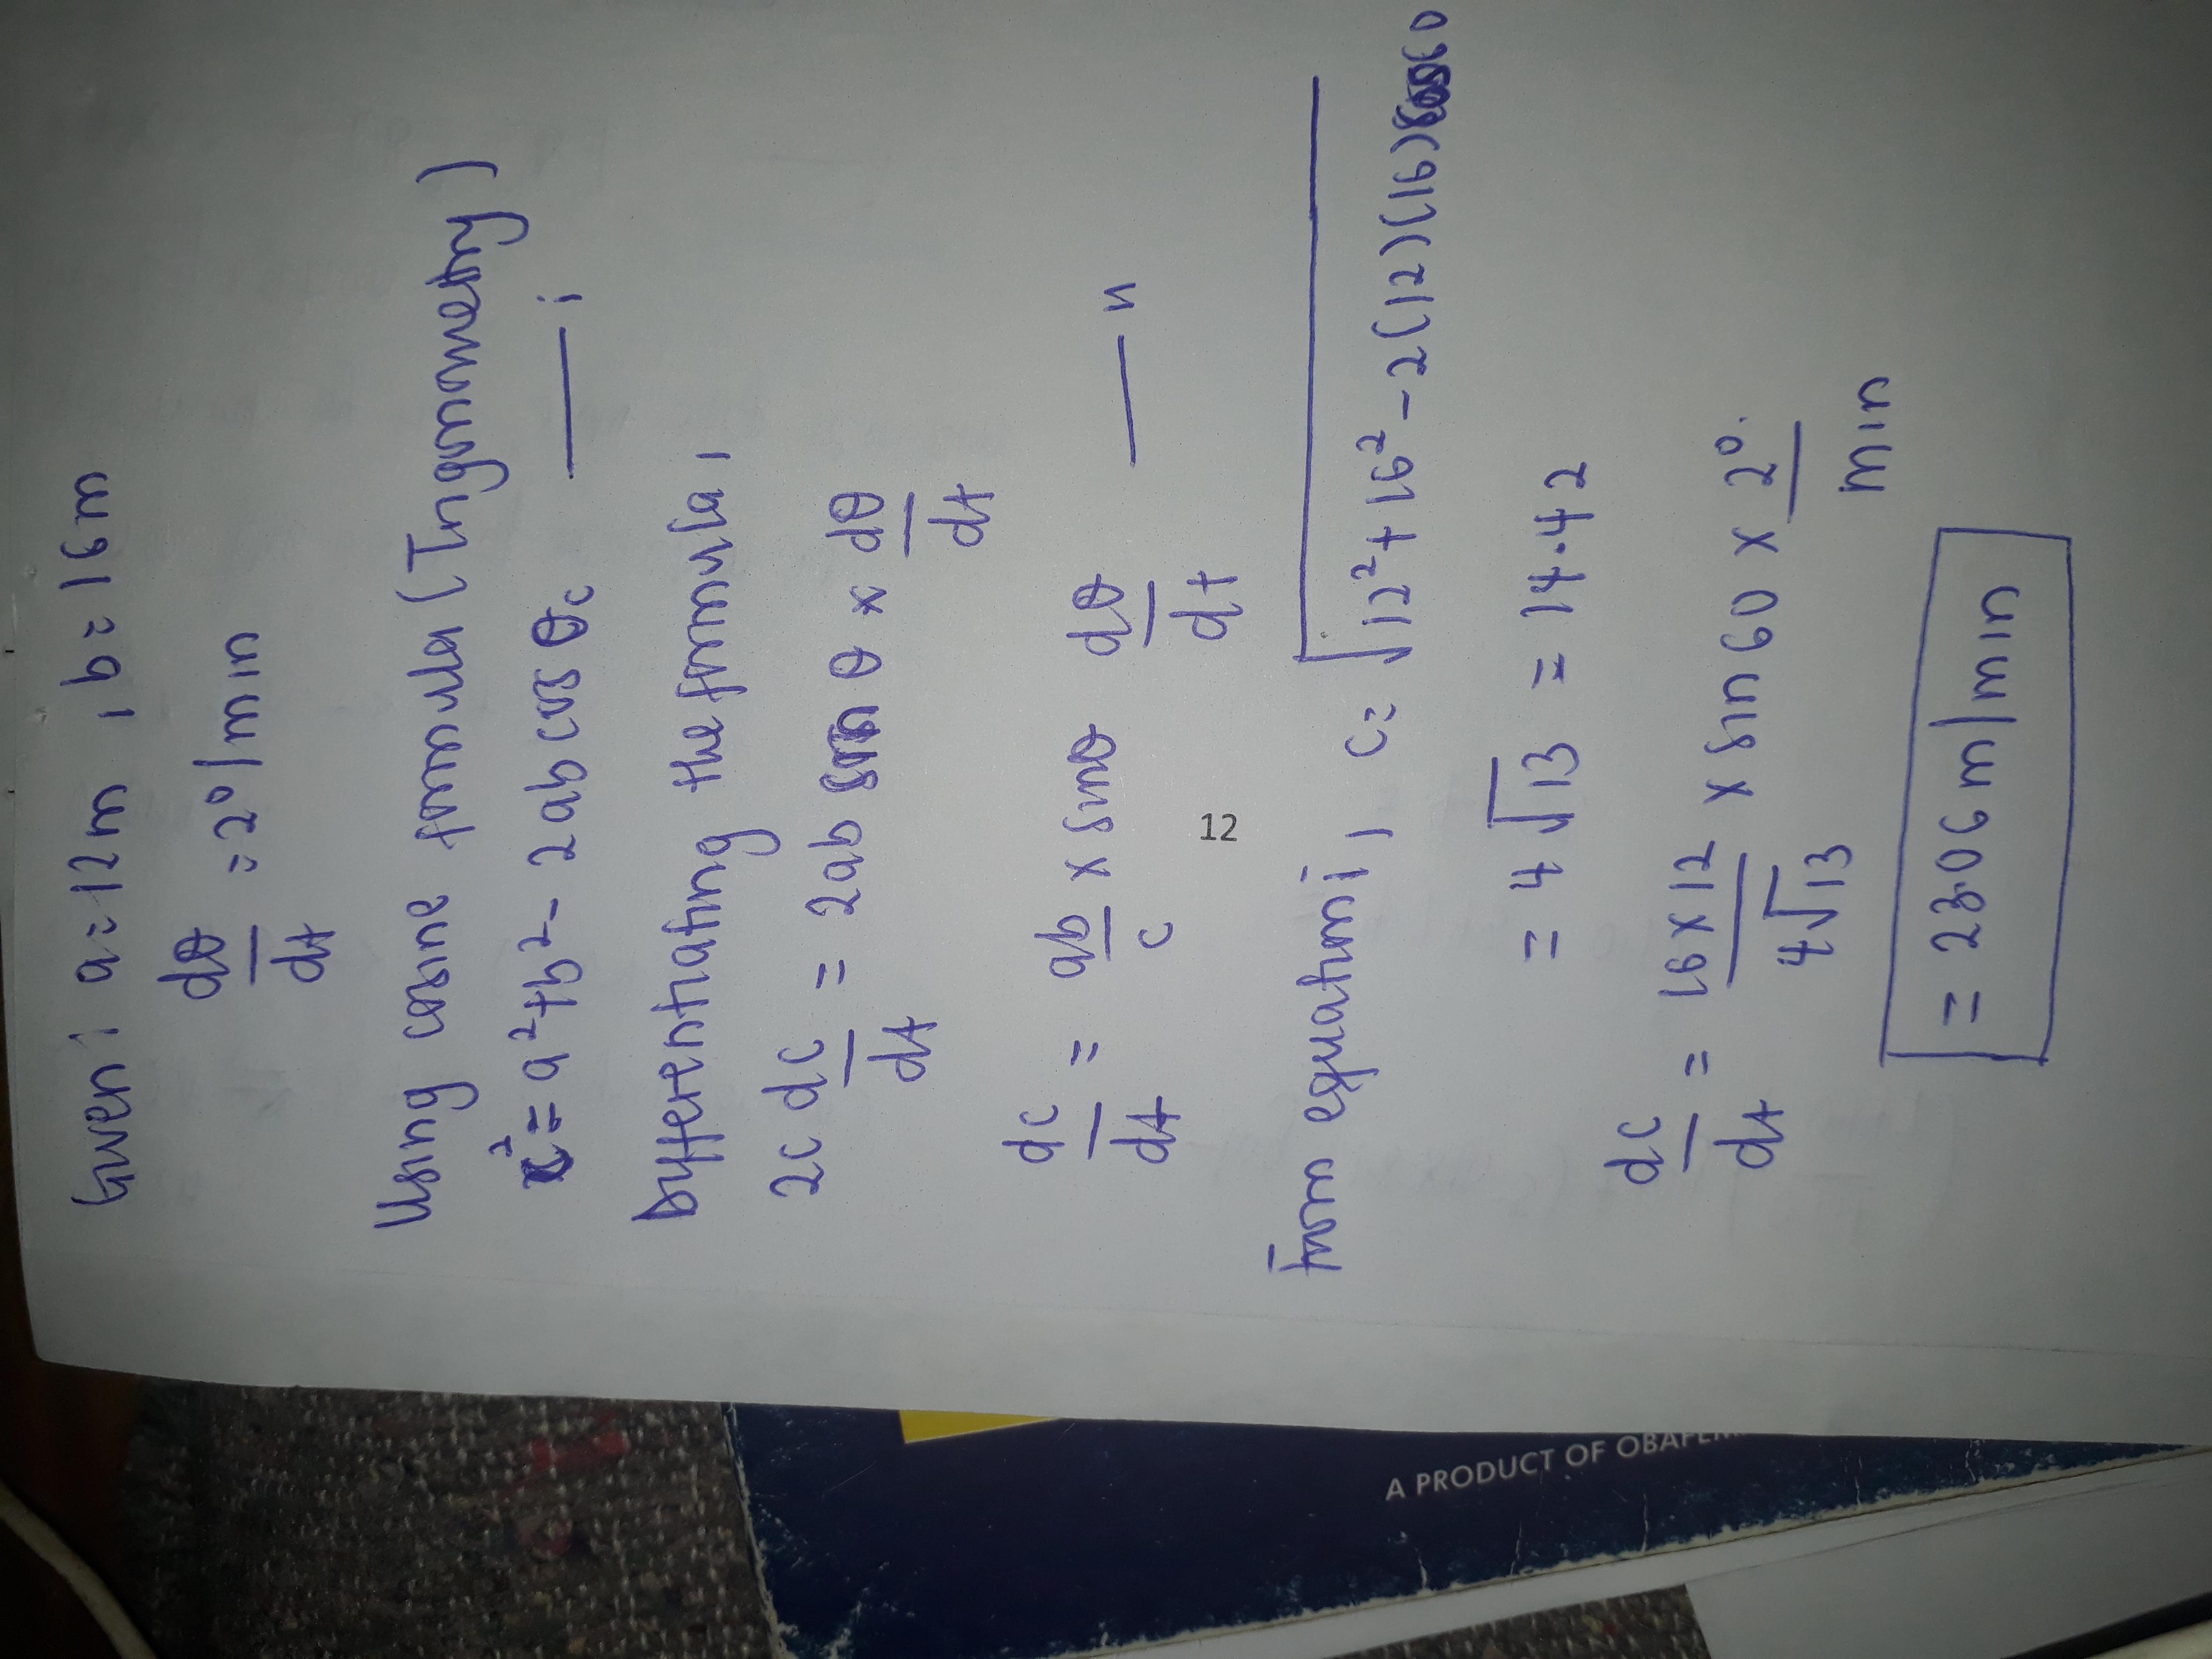 Given: a=12m, b=16m
dθ/dt =2°/min
Using cosine formula (Trigonometry)
c²=a²+b²-2ab cos θc —— i
Differentiating the formula,
2c dc/dt = 2ab sin θ x dθ/dt
dc/dt = ab/c x sinθ dθ/dt —— ii
12
From equation i, c= √12²+16²-2(12)(16)(cos60
= 4√13 = 14.42
dc/dt = 16x12/4√13 x sin60 x 2°/min
= 23.06m/min
A PRODUCT OF